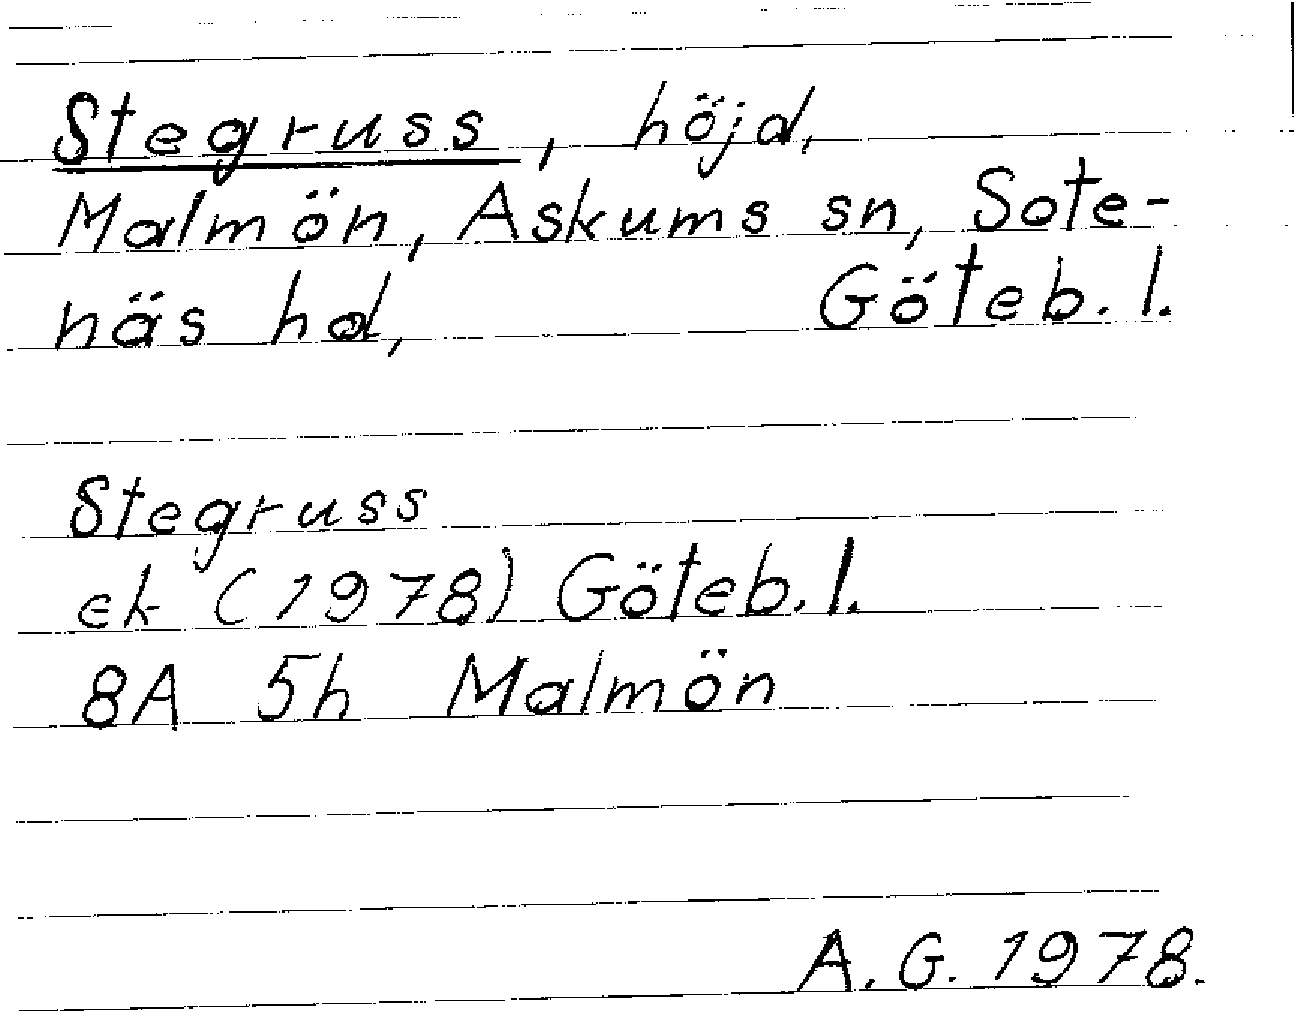 Stegruss, höjd,
Malmön, Askums sn, Sote-
näs hd, Göteb. l.
Stegruss
ek (1978) Göteb. l.
8A 5h Malmön
A. G. 1978.